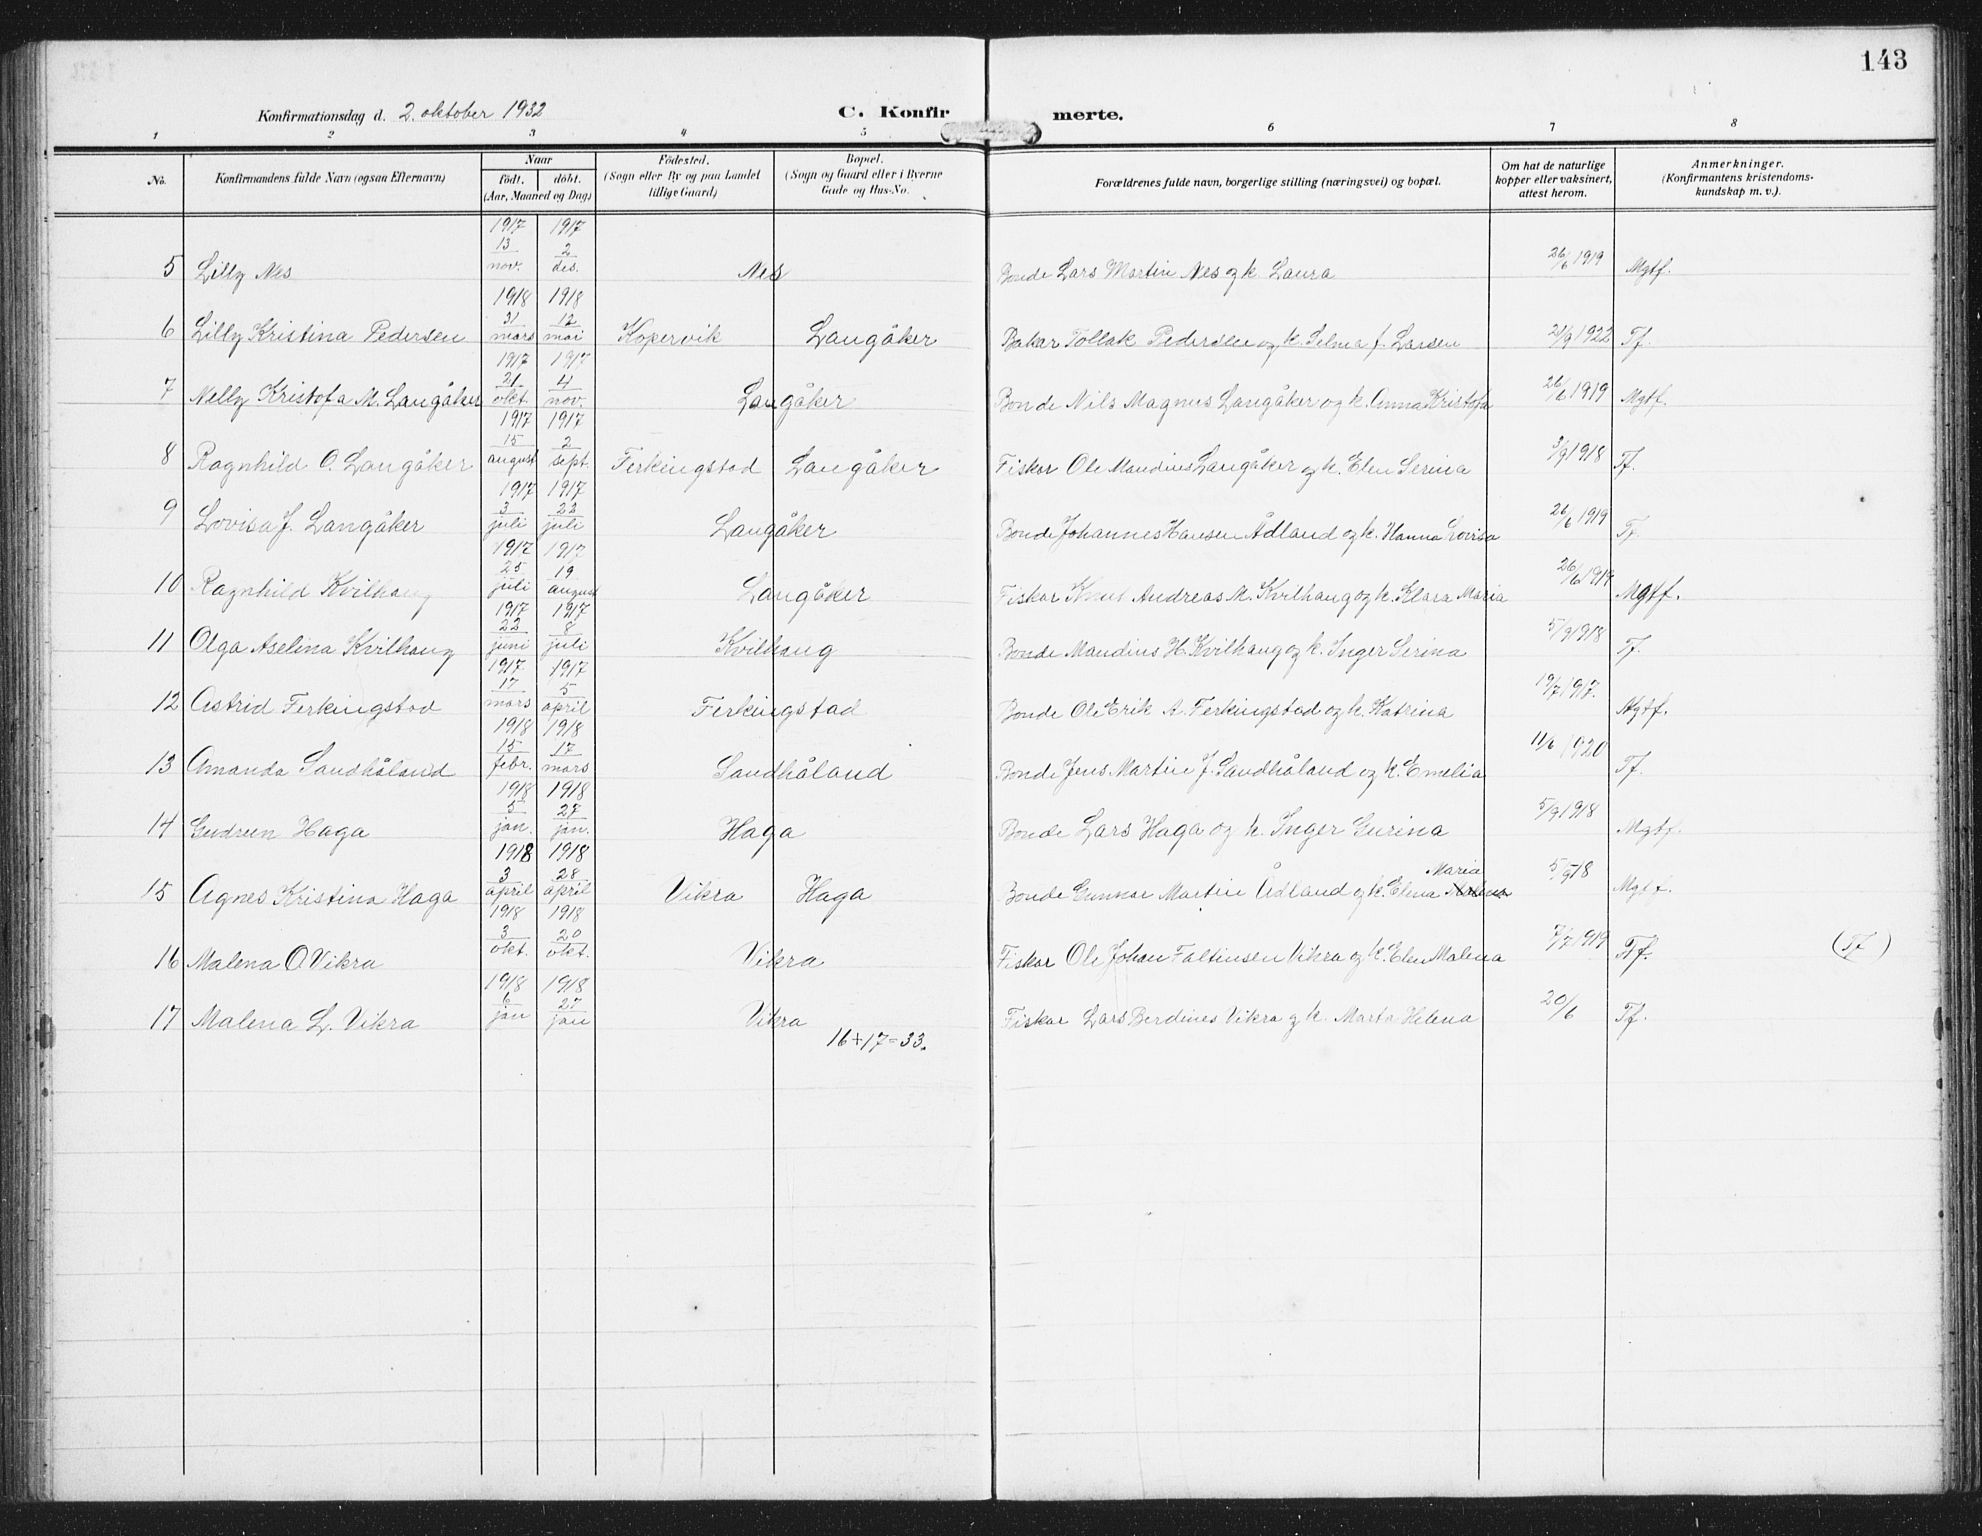 143
Konfirmationsdag d. 2. oktober 1932 C. Konfirmerte.
1 2 3 4 5 6 7 8
No. Konfirmandens fulde Navn (ogsaa Efternavn) Naar født. døbt. (Aar, Maaned og Dag) Fødested. (Sogn eller By og paa Landet tillige Gaard) Bopæl. (Sogn og Gaard eller i Byerne Gade og Hus-No. Forældrenes fulde navn, borgerlige stilling (næringsvei) og bopæl. Om hat de naturlige kopper eller vaksinert, attest herom. Anmerkninger. (Konfirmantens kristendoms-kundskap m. v.).
1917 1917
5 Lilly Nes 13/nov. 2/des. Nes Bonde Lars Martin Nes og k. Laura 26/6 1919 Mgtf.
1918 1918
6 Lilly Kristina Pedersen 31/mars 12/mai Kopervik Langåker Bakar Tollak Pedersen og k. Selma f. Larsen 21/9 1922 Tf.
1917 1917
7 Nelly Kristofa M. Langåker 21./okt. 4/nov. Langåker Bonde Nils Magnus Langåker og k. Anna Kristofa 26/6 1919 Mgtf.
1917 1917
8 Ragnhild O. Langåker 15/august 2/sept. Ferkingstad Langåker Fiskar Ole Mandius Langåker og k. Elen Serina 3/9 1918 Tf.
1917 1917
9 Lovisa J. Langåker 3/juli 22/juli Langåker Bonde Johannes Hansen Ådland og k. Hanna Lovisa 26/6 1919 Tf.
1917 1917
10 Ragnhild Kvilhaug 25/juli 19/august Langåker Fiskar Knut Andreas M. Kvilhaug og k. Klara Maria 26/6 1919 Mgtf.
1917 1917
11 Olga Aselina Kvilhaug 22/juni 8/juli Kvilhaug Bonde Mandius H. Kvilhaug og k. Inger Serina 5/9 1918 Tf.
1917 1917
12 Astrid Ferkingstad 17/mars 5/april Ferkingstad Bonde Ole Erik A. Ferkingstad og k. Katrina 19/7 1917. Mgtf.
1918 1918
13 Amanda Sandhåland 15/febr. 17/mars Sandhåland Bonde Jens Martin J. Sandhåland og k. Emelia 11/6 1920 Tf.
1918 1918
14 Gudrun Haga 5/jan. 27/jan. Haga Bonde Lars Haga og k. Inger Gurina 5/9 1918 Mgtf.
1918 1918
15 Agnes Kristina Haga 3/april 28/april Vikra Haga Bonde Gunnar Martin Ådland og k. Elena Maria 5/9 18 Mgtf.
1918 1918
16 Malena O. Vikra 3/okt. 20/okt. Vikra Fiskar Ole Johan Faltinsen Vikra og k. Elen Malena 7/7 1919 Tf. (Tf)
1918 1918
17 Malena L. Vikra 6/jan 27/jan Vikra Fiskar Lars Berdines Vikra og k. Marta Helena 20/6 Tf.
16+17=33.